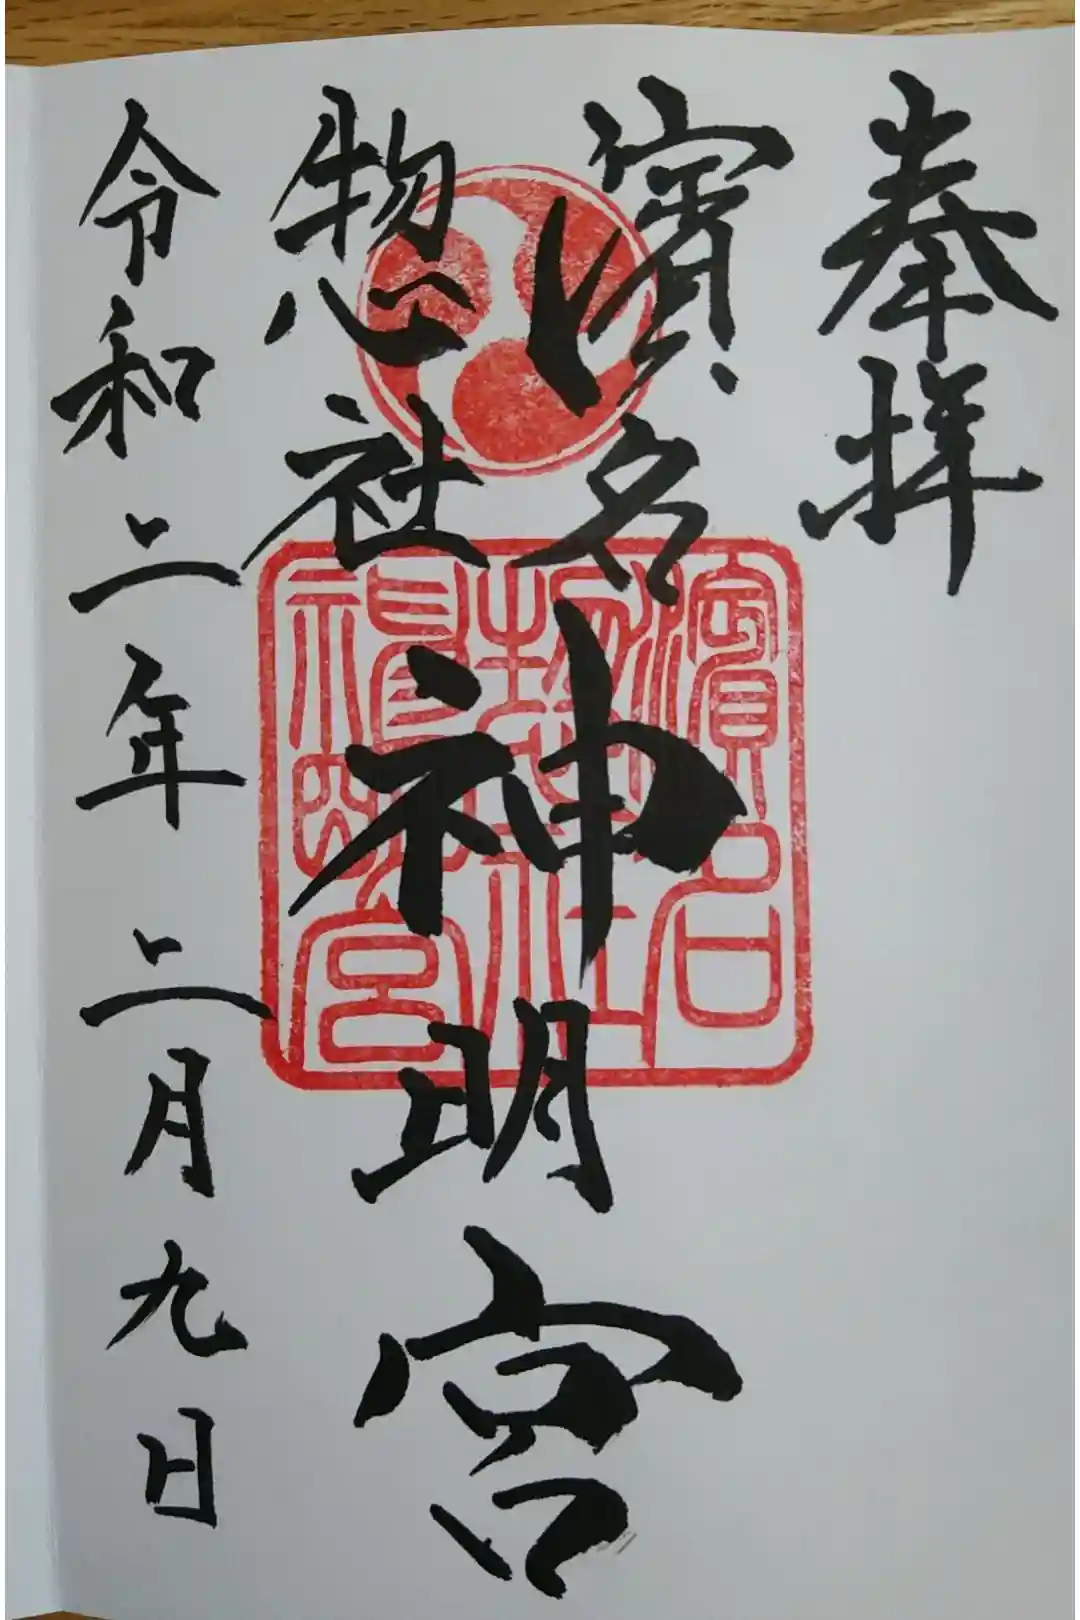 奉拝
濱名
惣社
神明宮
令和二年二月九日
濱名
惣社
神明宮